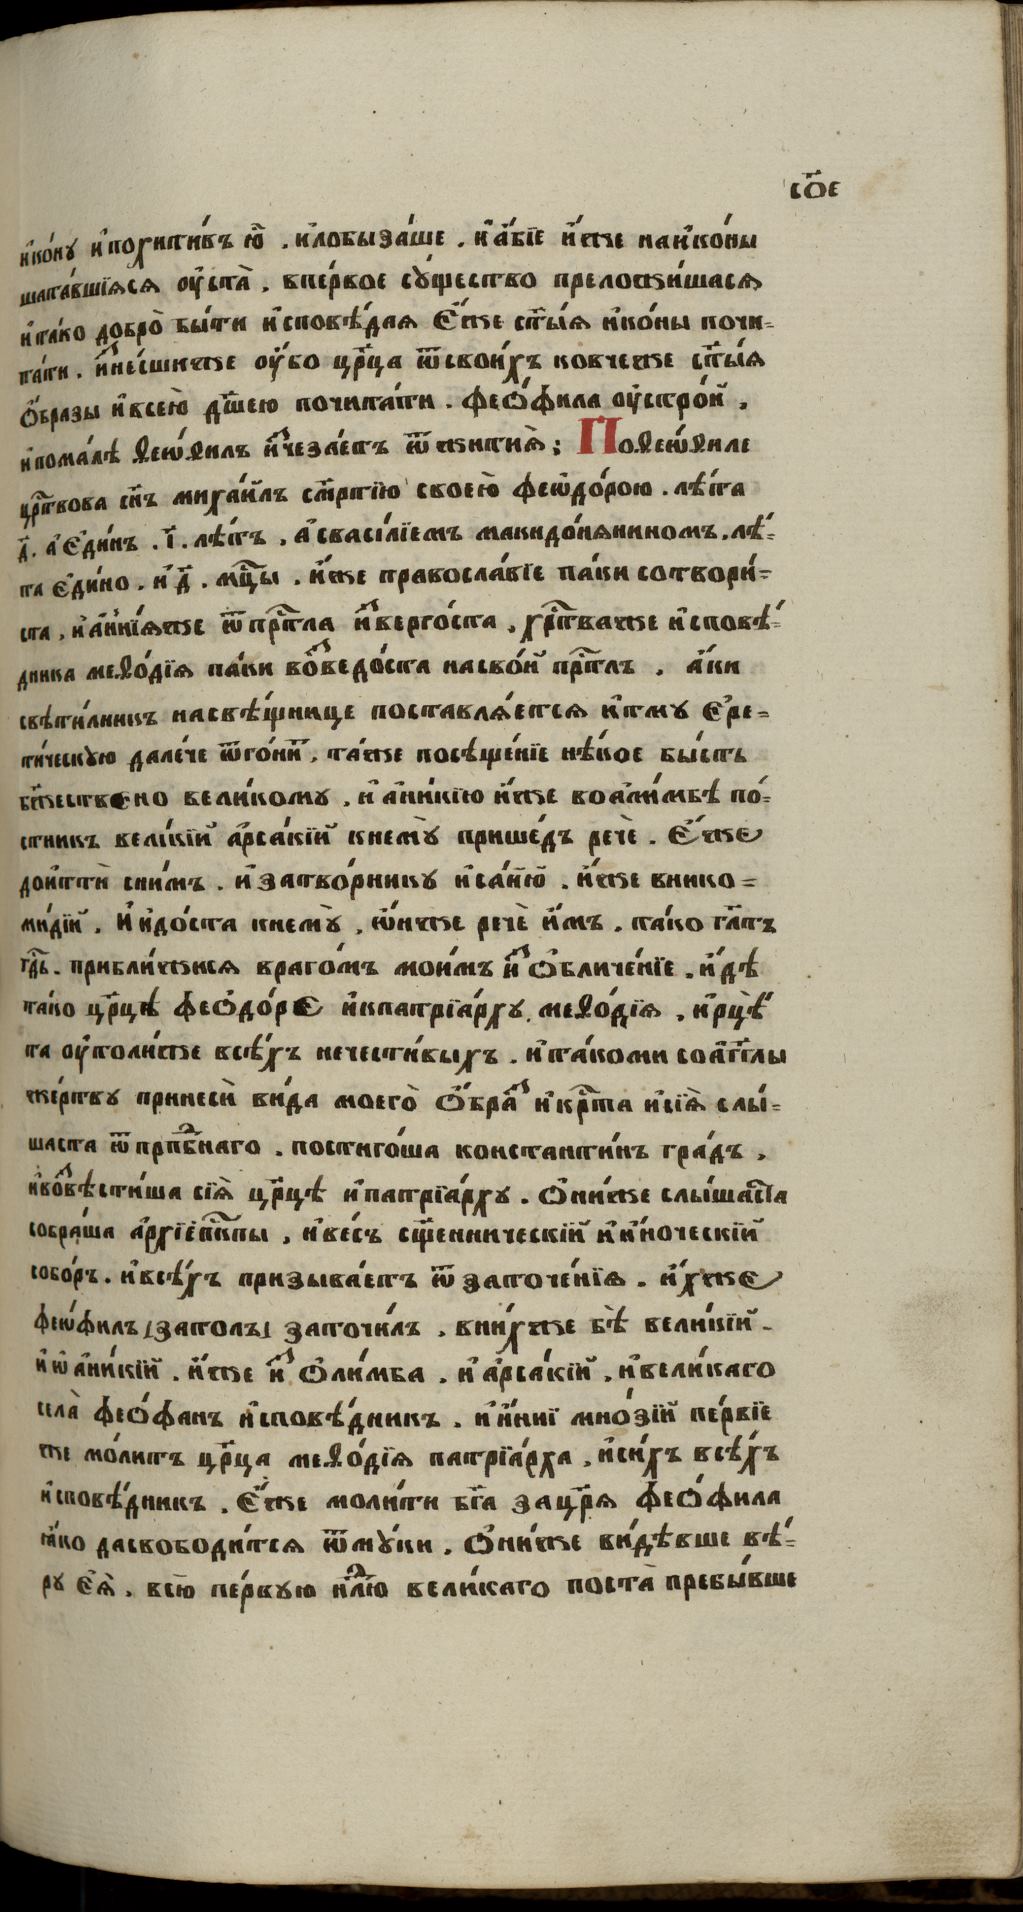 сѯ҃е
и҆ко́ну и҆похити́въ ю҆̀ . и҆лобыза́ше . и҆а҆́бїе и҆́же наи҆ко́ны
шата́вшїѧсѧ оу҆ста̀ . впе́рвое сꙋщество̀ преложи́шасѧ
и҆та́ко добро̀ бы́ти и҆сповѣ́даѧ є҆́же ст҃ы́ѧ и҆ко́ны почи-
та́ти . и҆знє́сшиже оу҆́бо цр҃ца ѿсвои́хъ ковчеже ст҃ы́ѧ
ѻ҆́бразы и҆все́ю дш҃ею почита́ти . феѻ́фила оу҆стро́й .
и҆помалѣ̀ ѳеѡ́ѳилъ и҆зчеза́етъ ѿ житиѧ̀ ; Поѳеѡ́ѳиле
црⷭ҇твова сн҃ъ миха́илъ см҃ртїю свое́ю феѡдо́рою . лѣ́та
д҃ . а҆є҆ди́нъ . і҃ . лѣ́тъ . а҆свасі́лїемъ македо́нѧниномъ . лѣ́-
та є҆ди́но . и҆ д҃ . мцⷭ҇ы . и҆́же правосла́вїе па́ки сотвори́-
ста , и҆а҆нні́ѧже ѿпрⷭ҇тла и҆зверго́ста , хрⷭ҇тваже и҆сповѣ́-
дника меѳо́дїѧ па́ки возведо́ста насво́й прⷭ҇тлъ . а҆́ки
свѣти́лникъ насвѣ́щнице поставлѧ́етсѧ и҆тму є҆ре-
ти́ческую дале́че ѿго́нитъ , та́же посѣще́нїе нѣ́кое бы́сть
бж҃ественно вели́кому . и҆ а҆ники́ю и҆́же воа҆ли́мбѣ по́-
стникъ вели́кїй а҆рса́кїй кнемꙋ̀ прише́дъ речѐ . є҆́же
доиттѝ сни́мъ . и҆ затво́рнику и҆са́ию . и҆́же внико-
ми́дїй . и҆ и҆до́ста кнемꙋ̀ , ѡ҆́ниже речѐ и҆́мъ . тако гл҃тъ
гдⷭ҇ь . прибли́жисѧ враго́мъ мои́мъ и҆ ѻ҆бличе́нїе . и҆дѣ́
тако цр҃цѣ феѻдо́ре и҆кпатрїа́рху . меѳо́дїѧ , и҆рцѣ́
та оу҆толи́же всѣ́хъ нечести́выхъ . и҆та́коми соа҆́гг҃лы
же́ртву принесѝ ви́да моего̀ ѻ҆́браз и҆крⷭ҇та и҆сїѧ̀ слы́-
шаста ѿпрпⷣбнаго . постиго́ша константи́нъ гра́дъ .
и҆возвѣсти́ша сїѧ̀ цр҃цѣ и҆патрїа́рху . ѻ҆ни́же слы́шаста
собра́ша а҆рхїе́пⷭ҇кпы , и҆ве́съ сщ҃е́нническїй и҆и҆́ноческїй
собо́ръ . и҆всѣ́хъ призыва́етъ ѿ заточе́нїѧ . и҆́хже
феѡ́филъ затолъ заточи́лъ . вни́хже бѣ̀ вели́кїй .
и҆ ѡ҆а҆ни́кїй . и҆́же и҆з ѻ҆ли́мба . и҆ а҆рса́кїй . и҆вели́каго
села̀ феѻ́фанъ и҆сповѣ́дникъ . и҆ и҆́ниї мно́зїй пе́рвїе
же мо́литъ цр҃ца меѳо́дїѧ патрїа́рха , и҆си́хъ всѣ́хъ
и҆сповѣ́дник . є҆́же моли́ти бг҃а зацр҃ѧ феѻ́фила
ꙗ҆́ко дасвободи́тсѧ ѿмꙋ́ки . ѻ҆ни́же ви́дѣвше вѣ́-
ру є҆ѧ̀ . всю пе́рвую нлⷣю вели́каго поста̀ пребы́вше